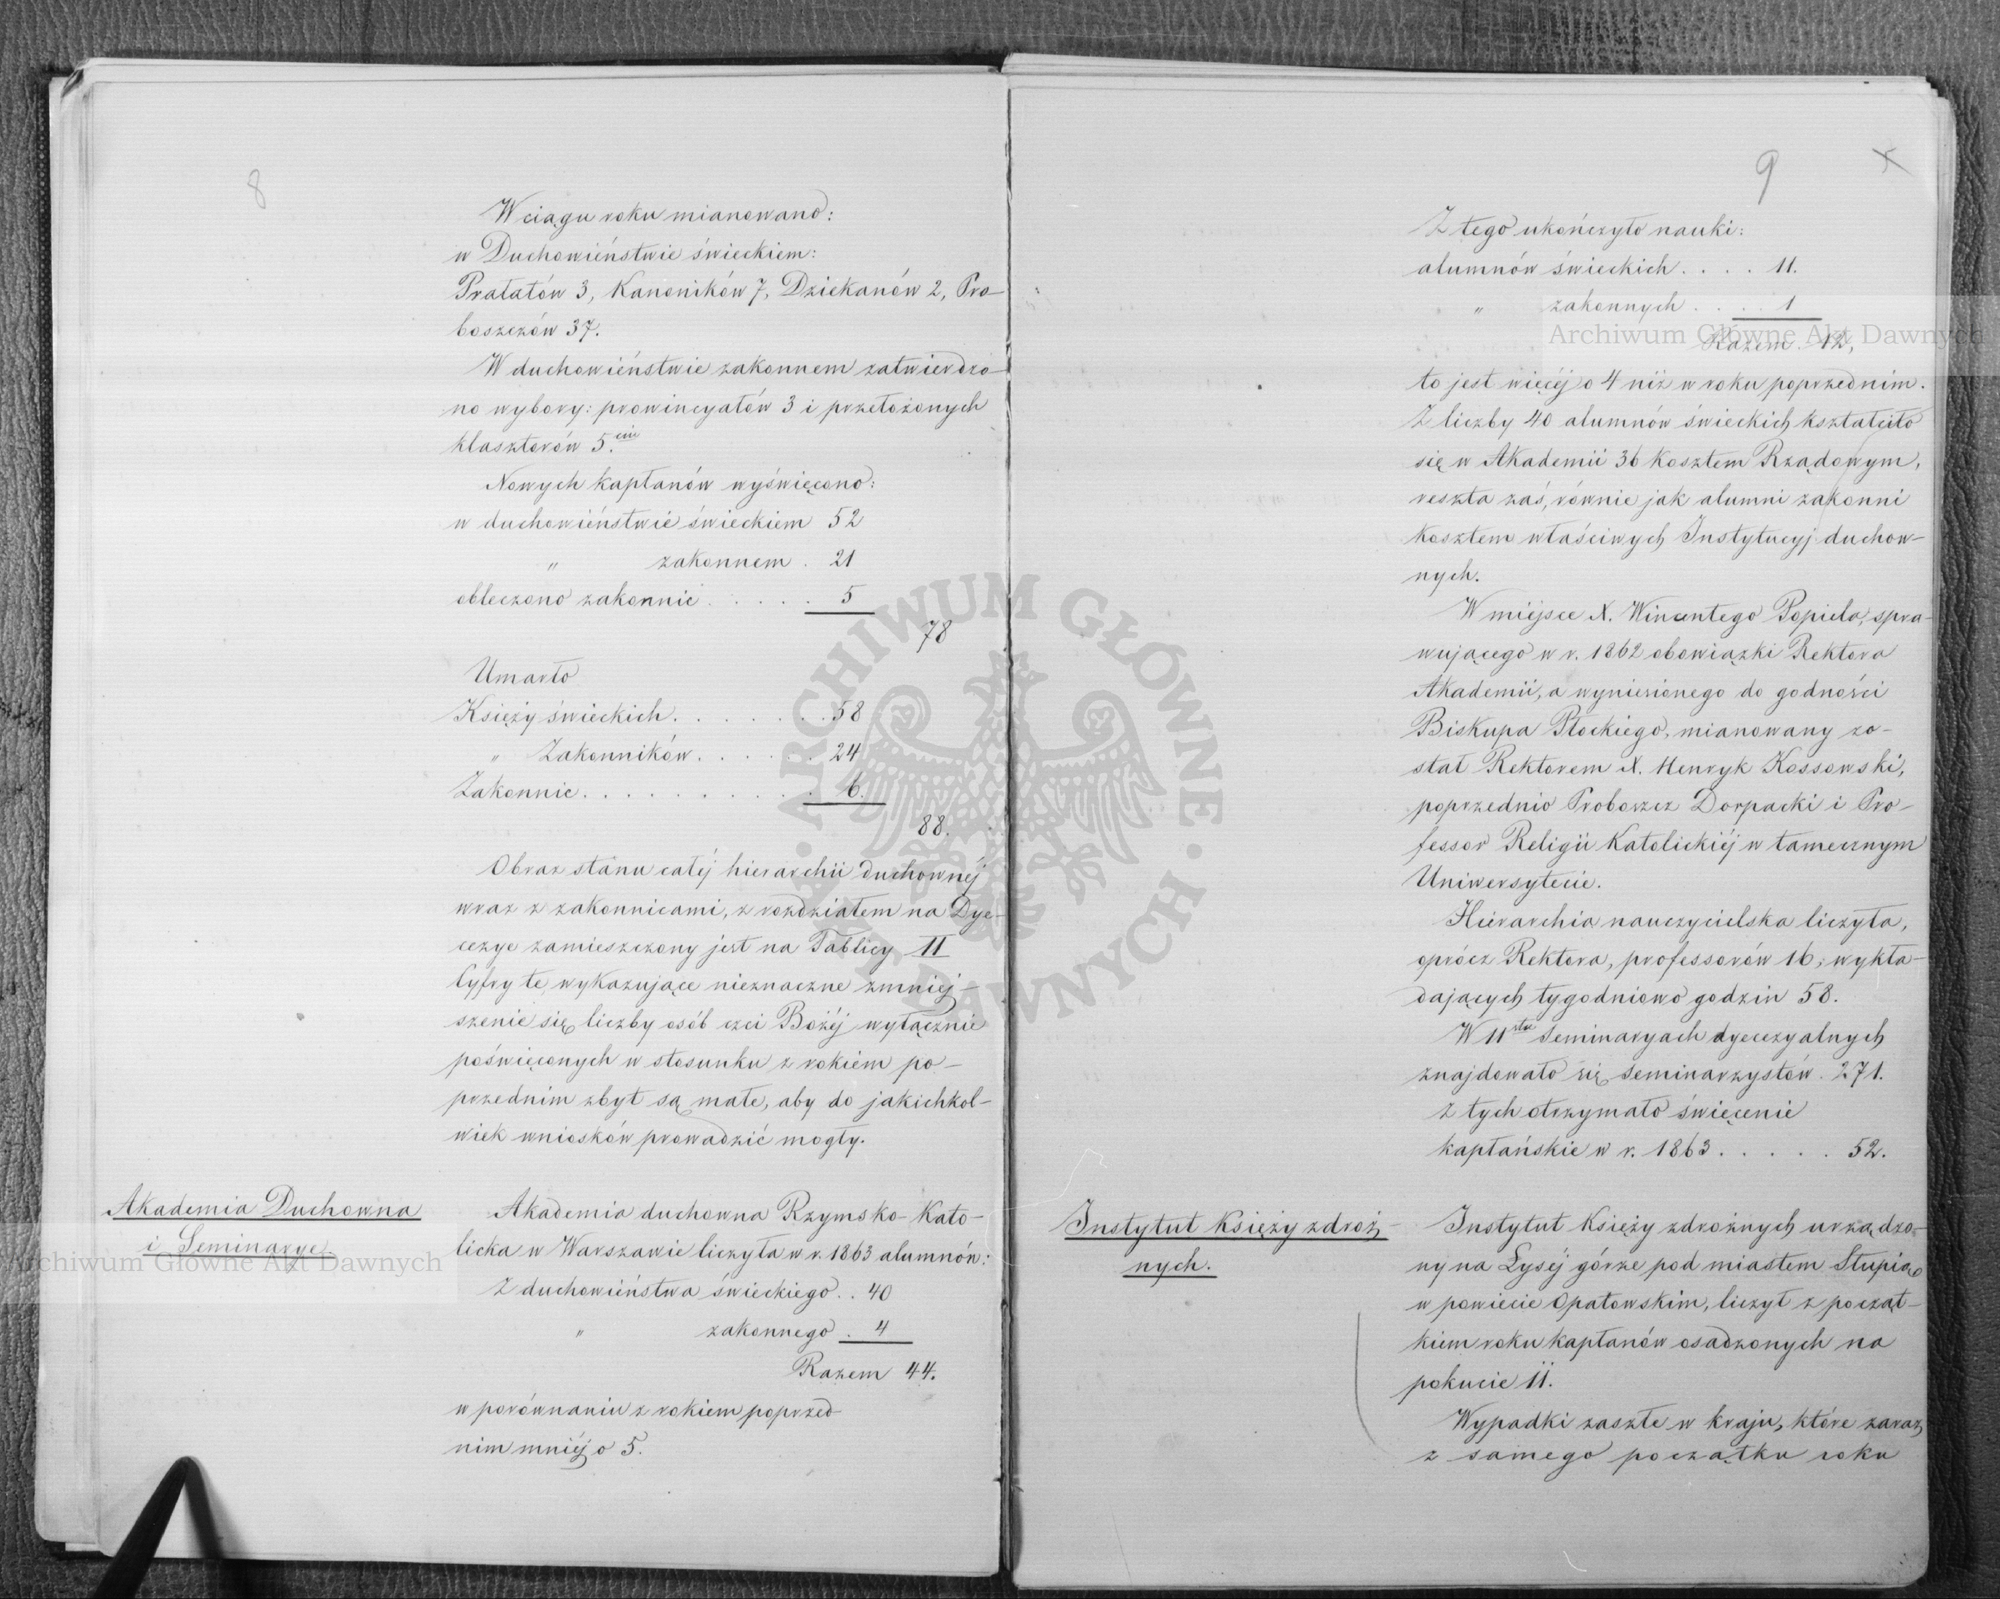 8
W ciągu roku mianowano:
w Duchowieństwie świeckiem:
Prałatów 3, Kanoników 7, Dziekanów 2, Pro-
boszczów 37.
W duchowieństwie zakonnem zatwierdzo-
no wybory: prowincyałów 3 i przełożonych
klasztorów 5.ciu
Nowych kapłanów wyświęcono:
w duchowieństwie świeckiem 52
" zakonnem . 21
obleczono zakonnic . . . . . 5
78
Umarło
Księży świeckich . . . . . . . 58
" Zakonników . . . . . . 24
Zakonnic . . . . . . . . . . . 6.
88.
Obraz stanu całéj hierarchii duchownéj
wraz z zakonnicami, z rozdziałem na Dye-
cezye zamieszczony jest na Tablicy II
Cyfry te, wykazujące nieznaczne zmniej-
szenie się liczby osób czci Bożéj wyłącznie
poświęconych w stosunku z rokiem po-
przednim zbyt są małe, aby do jakichkol-
wiek wniosków prowadzić mogły.
Akademia Duchowna
i Seminarye.
Akademia duchowna Rzymsko-Kato-
licka w Warszawie liczyła w r. 1863 alumnów:
Z duchowieństwa świeckiego . . 40
" zakonnego . 4
Razem 44.
w porównaniu z rokiem poprzed-
nim mniéj o 5.
9
Z tego ukończyło nauki:
alumnów świeckich . . . . 11.
" zakonnych . . . . 1
Razem . 12,
to jest więcéj o 4 niż w roku poprzednim.
Z liczby 40 alumnów świeckich kształciło
się w Akademii 36 kosztem Rządowym,
reszta zaś, równie jak alumni zakonni
kosztem właściwych Instytucyj duchow-
nych.
W miejsce X. Wincentego Popiela, spra-
wującego w r. 1862 obowiązki Rektora
Akademii, a wyniesionego do godności
Biskupa Płockiego, mianowany zo-
stał Rektorem X. Henryk Kossowski,
poprzednio Proboszcz Dorpacki i Pro-
fessor Religii Katolickiéj w tamecznym
Uniwersytecie.
Hierarchia nauczycielska liczyła,
oprócz Rektora, professorów 16; wykła-
dających tygodniowo godzin 58.
W 11stu Seminaryach dyecezyalnych
znajdowało się seminarzystów . 271.
z tych otrzymało święcenie
kapłańskie w r. 1863 . . . . . 52.
Instytut Księży zdroż-
nych.
Instytut Księży zdrożnych urządzo-
ny na Łyséj górze pod miastem Słupią
w powiecie Opatowskim, liczył z począt-
kiem roku kapłanów osadzonych na
pokucie 11.
Wypadki zaszłe w kraju, które zaraz
z samego początku roku
Archiwum Główne Akt Dawnych
Archiwum Główne Akt Dawnych
ARCHIWUM GŁÓWNE AKT DAWNYCH